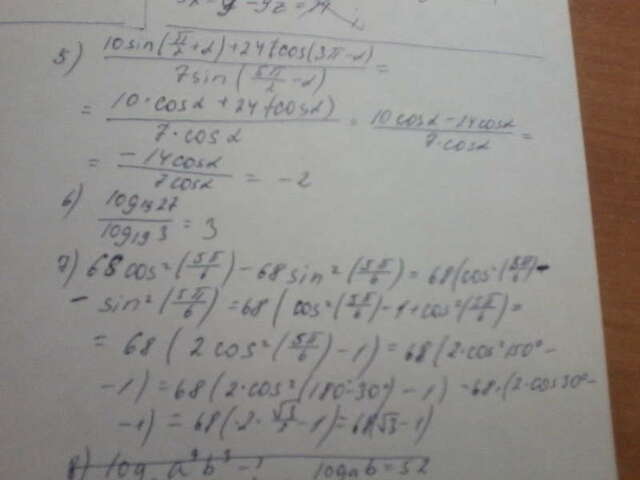 5) (10sin(π/2+α)+24(cos(3π-α))/(7sin(5π/2-α)) =
= (10·cosα+24(cosα))/(7·cosα) = (10cosα-24cosα)/(7·cosα) =
= (-14cosα)/(7cosα) = -2
6) (log₁₉27)/(log₁₉3) = 3
7) 68cos²(5π/6)-68sin²(5π/6)=68(cos²(5π/6)-
- sin²(5π/6)=68(cos²(5π/6)-1+cos²(5π/6)=
= 68(2cos²(5π/6)-1)=68(2·cos²150°-
-1)=68(2·cos²(180°-30°)-1)=68·(2·cos30°-
-1)=68(-2·√3/2-1)=68(√3-1)
8) log